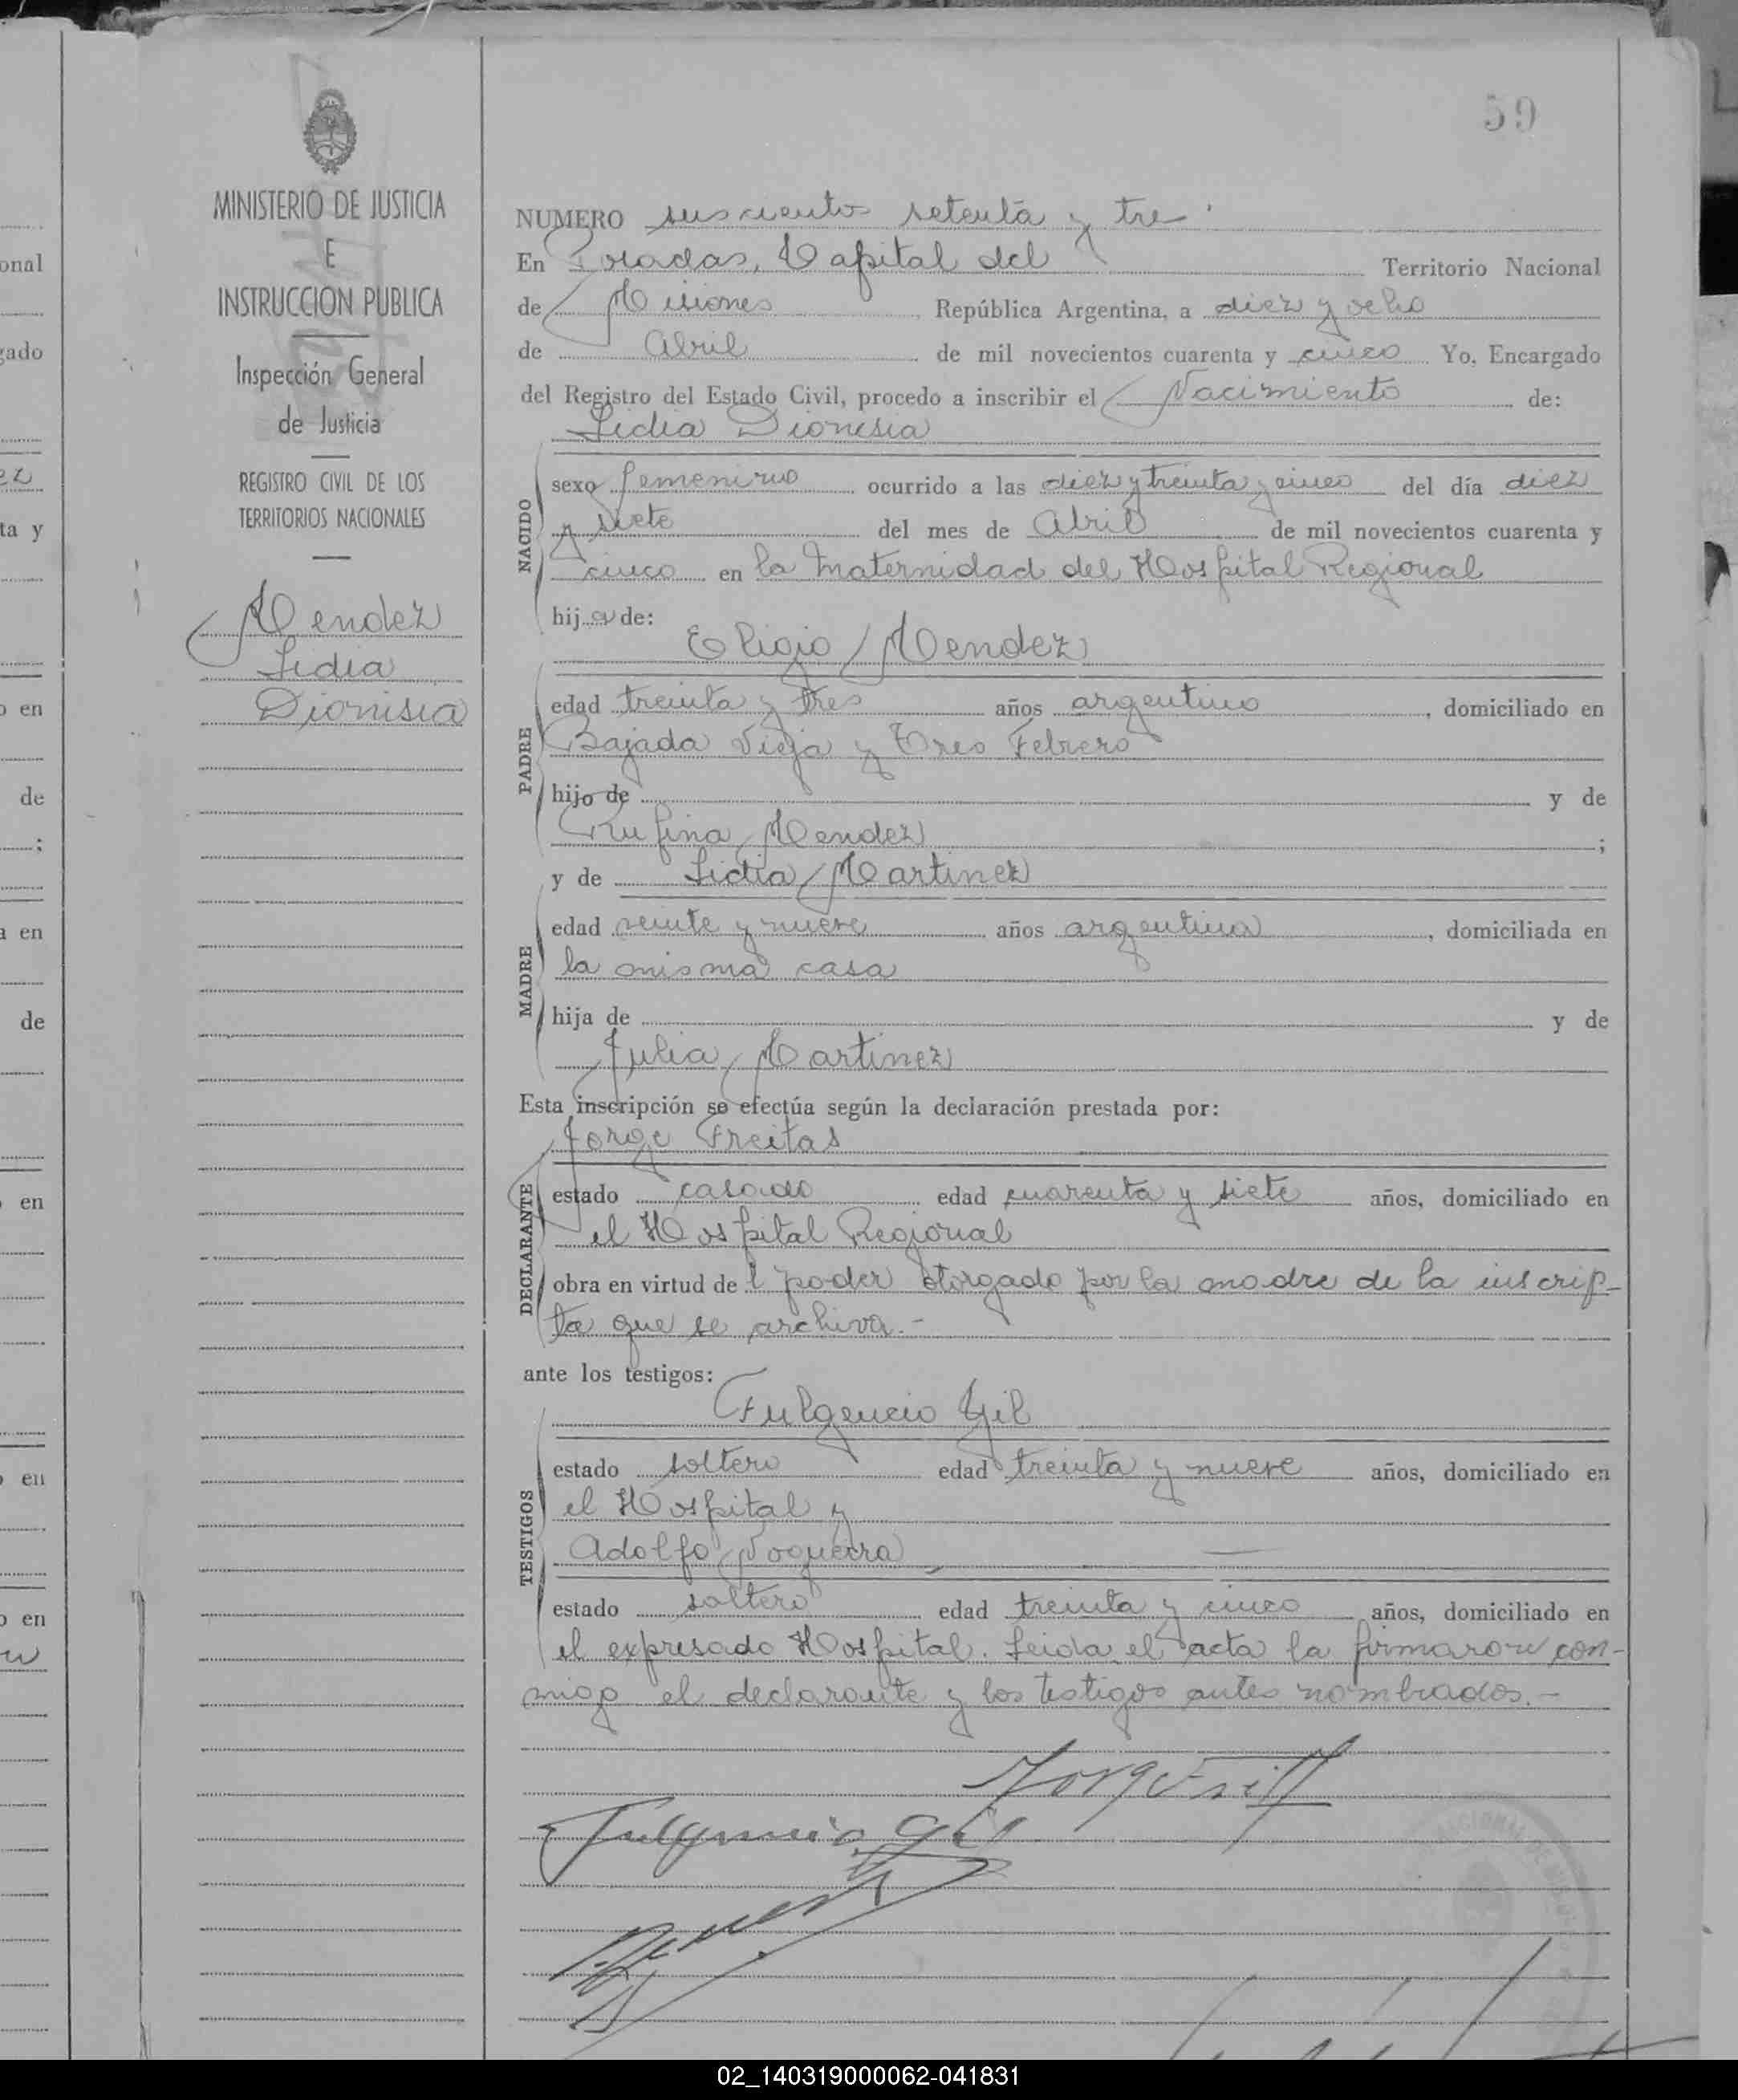 59
MINISTERIO DE JUSTICIA
E
INSTRUCCION PUBLICA
Inspección General
de Justicia
REGISTRO CIVIL DE LOS
TERRITORIOS NACIONALES
Mendez
Lidia
Dionisia
NUMERO cientos setenta y tres
En Posadas, Capital del Territorio Nacional
de Misiones República Argentina, a diez y ocho
de Abril de mil novecientos cuarenta y cinco Yo, Encargado
del Registro del Estado Civil, procedo a inscribir el Nacimiento de:
Lidia Dionisia
NACIDO
sexo femenino ocurrido a las diez y treinta y cinco del día diez
y siete del mes de Abril de mil novecientos cuarenta y
cinco en la Maternidad del Hospital Regional
hija de:
Eligio Mendez
PADRE
edad treinta y tres años argentino, domiciliado en
Bajada Vieja y Tres Febrero
hijo de y de
Rufina Mendez;
y de Lidia Martinez
MADRE
edad veinte y nueve años argentina, domiciliada en
la misma casa
hija de y de
Julia Martinez
Esta inscripción se efectúa según la declaración prestada por:
Jorge Freitas
DECLARANTE
estado casado edad cuarenta y siete años, domiciliado en
el Hospital Regional
obra en virtud del poder otorgado por la madre de la inscrip-
ta que se archiva.-
ante los testigos:
Fulgencio Gil
TESTIGOS
estado soltero edad treinta y nueve años, domiciliado en
el Hospital y
Adolfo Noguera
estado soltero edad treinta y cinco años, domiciliado en
el expresado Hospital. Leida el acta la firmaron con-
migo el declarante y los testigos antes nombrados.-
Fulgencio Gil
02_140319000062-041831